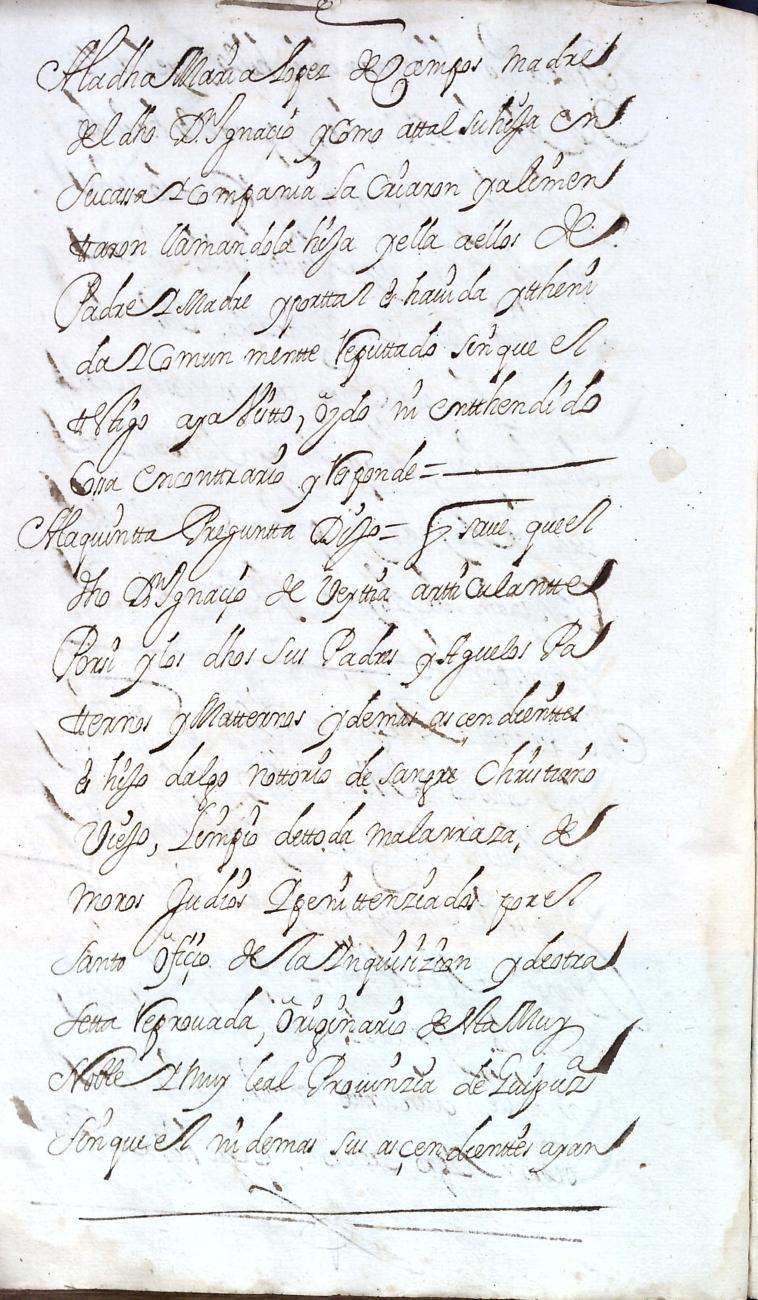 Aladha Maria Lopez de Ocampos madre
del dho Dn Ygnacio y Como attal su hissa en
Su cassa I compania la Criaron y alimen
ttaron llamandola hissa y ella aellos de
Padre I Madre y por ttal es hauida y ttheni
da I Comun mentte Reputtado sin que el
tt.go aya Visto, oydo ni entthendido
Cossa en conttrario y Responde =
Ala quintta Preguntta Disso = q saue que el
dho Dn Ygnacio de Vertiz artticulantte
Por si y los dhos sus Padres y Aguelos Pa
tternos y Matternos y demas ascendienttes
es hisso dalgo nottorio de sangre Christiano
Viesso, limpio de ttoda malarraza, de
moros Judios I penittenziados por el
santo oficio de la Inquisizion y de otra
setta Reprouada, originario de la Muy
Noble I muy leal Prouinzia de Guipuzª
sin que el ni demas sus ascendienttes ayan